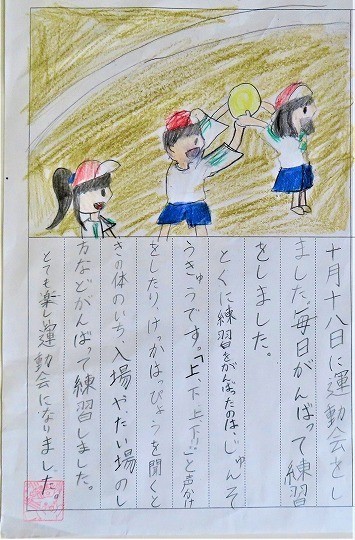 十月十八日に運動会をし
ました。毎日がんばって練習
をしました。
とくに練習をがんばったのは、じゅんそ
うきゅうです。「上、下、上、下!!」と声かけ
をしたり、けっかはっぴょうを聞くと
きの体のいち、入場や、たい場のし
方などがんばって練習しました。
とても楽しい運動会になりました。